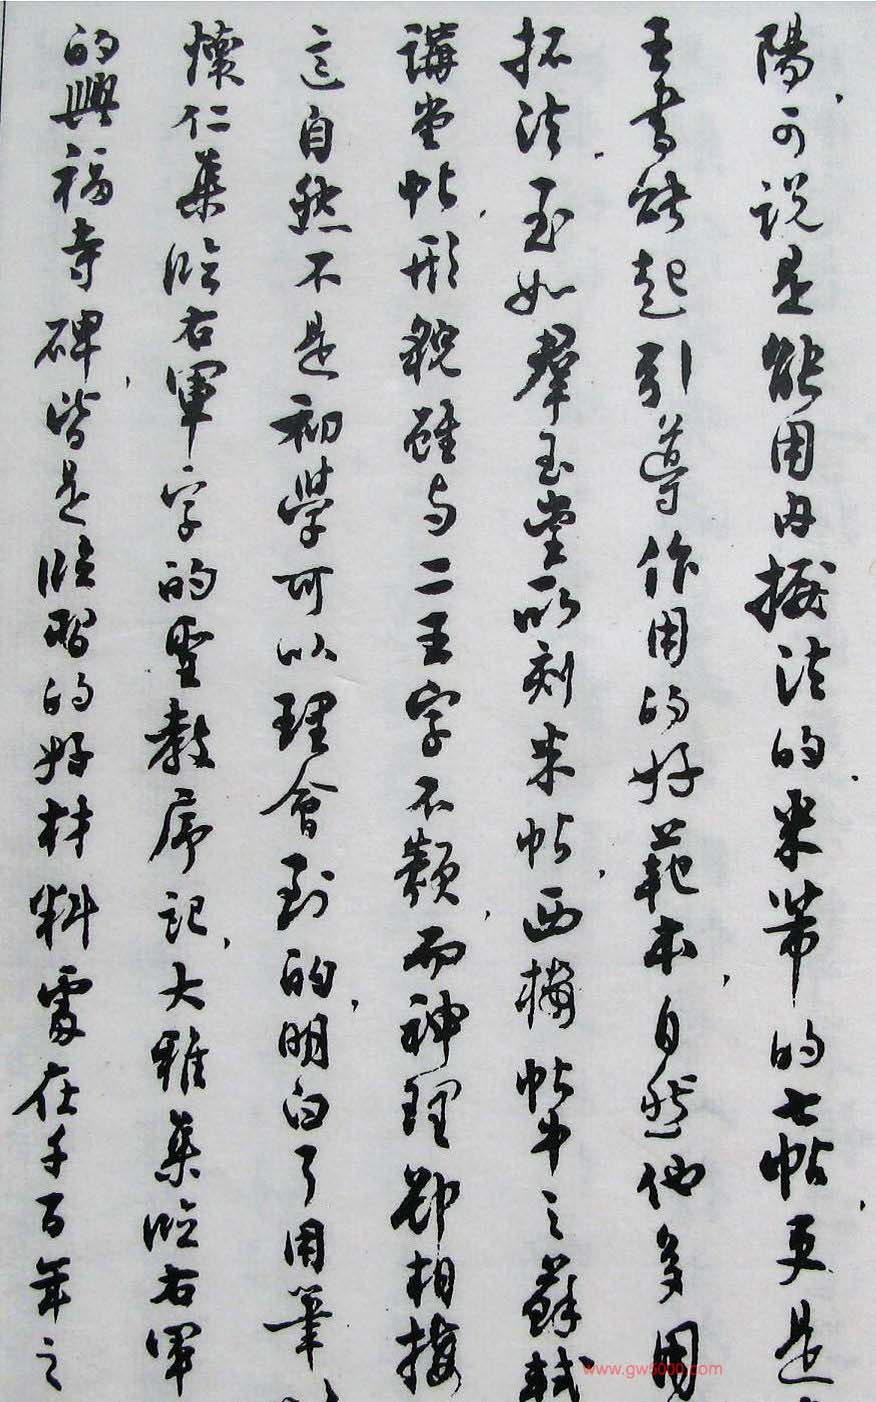 陽，可说是能用内擫法的，米芾的七帖，更是
王書能起引導作用的好範本，自然他多用
拓法，至如羣玉堂所刻米帖，西樓帖中之蘇軾
講堂帖，形貌雖与二王字不類，而神理却相接
這自然不是初學可以理會到的，明白了用筆
懷仁集臨右軍字的聖教序記，大雅集臨右軍
的興福寺碑，皆是臨習的好材料，處在千百年之
www.gw5000.com